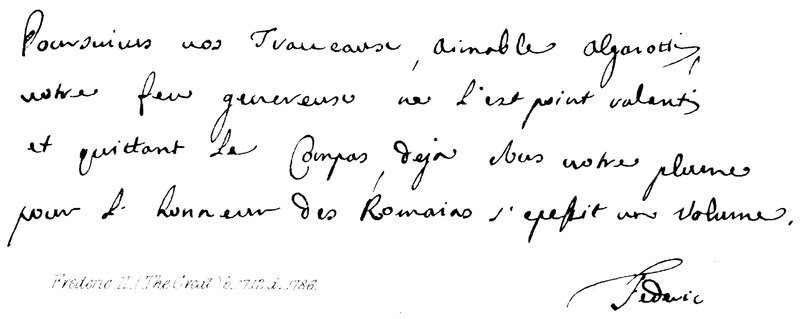 Poursuivés vos Traveause, aimable algarotti,
votre feu genereuse ne s'est point ralanti,
et quittant le Compas, deja sous votre plume
pour l'honneur des Romains s'epessit un volume.
Federic
Frederic II. (The Great) b. 1712. d. 1786.